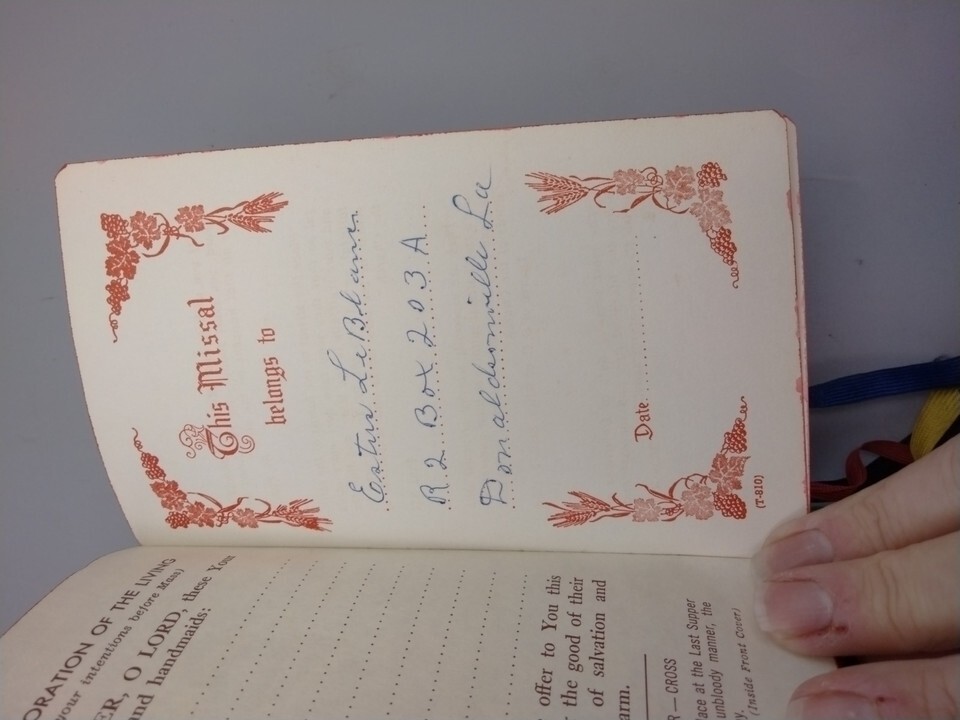 This Missal
belongs to
LeBlanc
R.2 Box 203 A
Donaldsonville La
Date
(T-810)
ORATION OF THE LIVING
your intentions before Mass)
ER, O LORD, these You
and handmaids:
offer to You this
the good of their
of salvation and
arm.
R — CROSS
lace at the Last Supper
unbloody manner, the
y.
(Inside Front Cover)